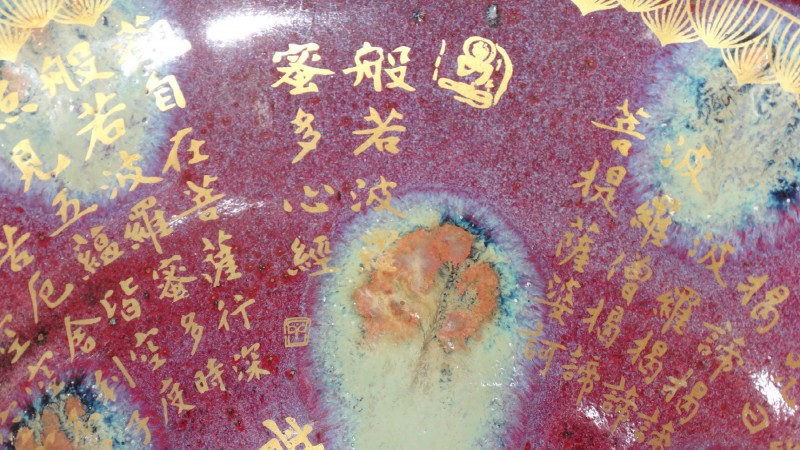 曰
揭諦揭諦
波羅揭諦
波羅僧揭諦
菩提薩婆訶
般若波羅
蜜多心經
觀自在菩薩行深
般若波羅蜜多時
照見五蘊皆空度
苦厄舍利子